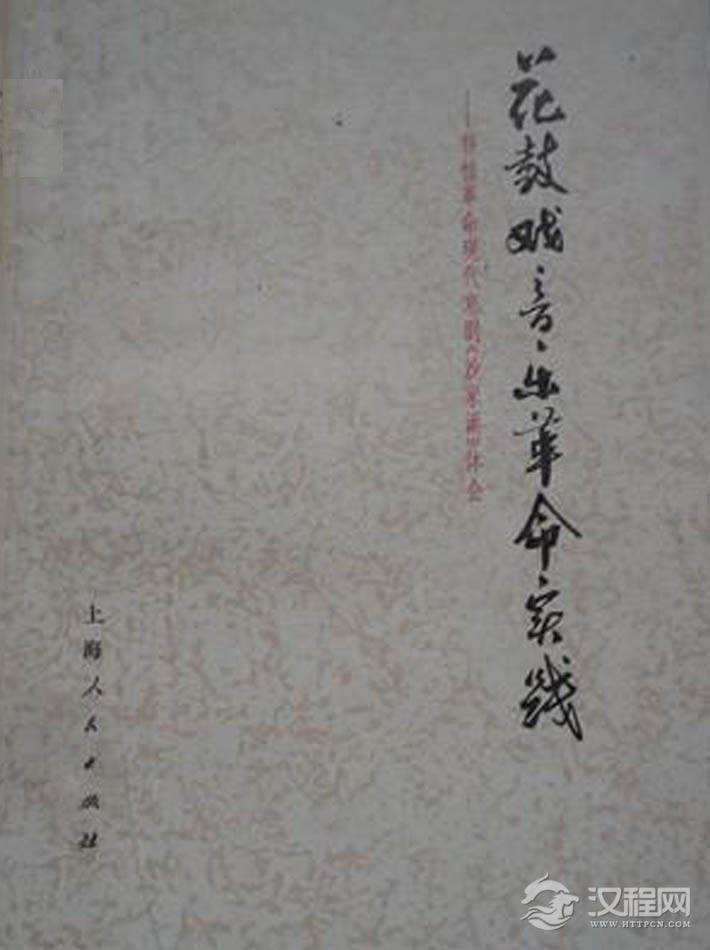 花鼓戏音乐革命实践
——移植革命现代京剧《沙家浜》体会
上海人民出版社
汉程网
WWW.HTTPCN.COM